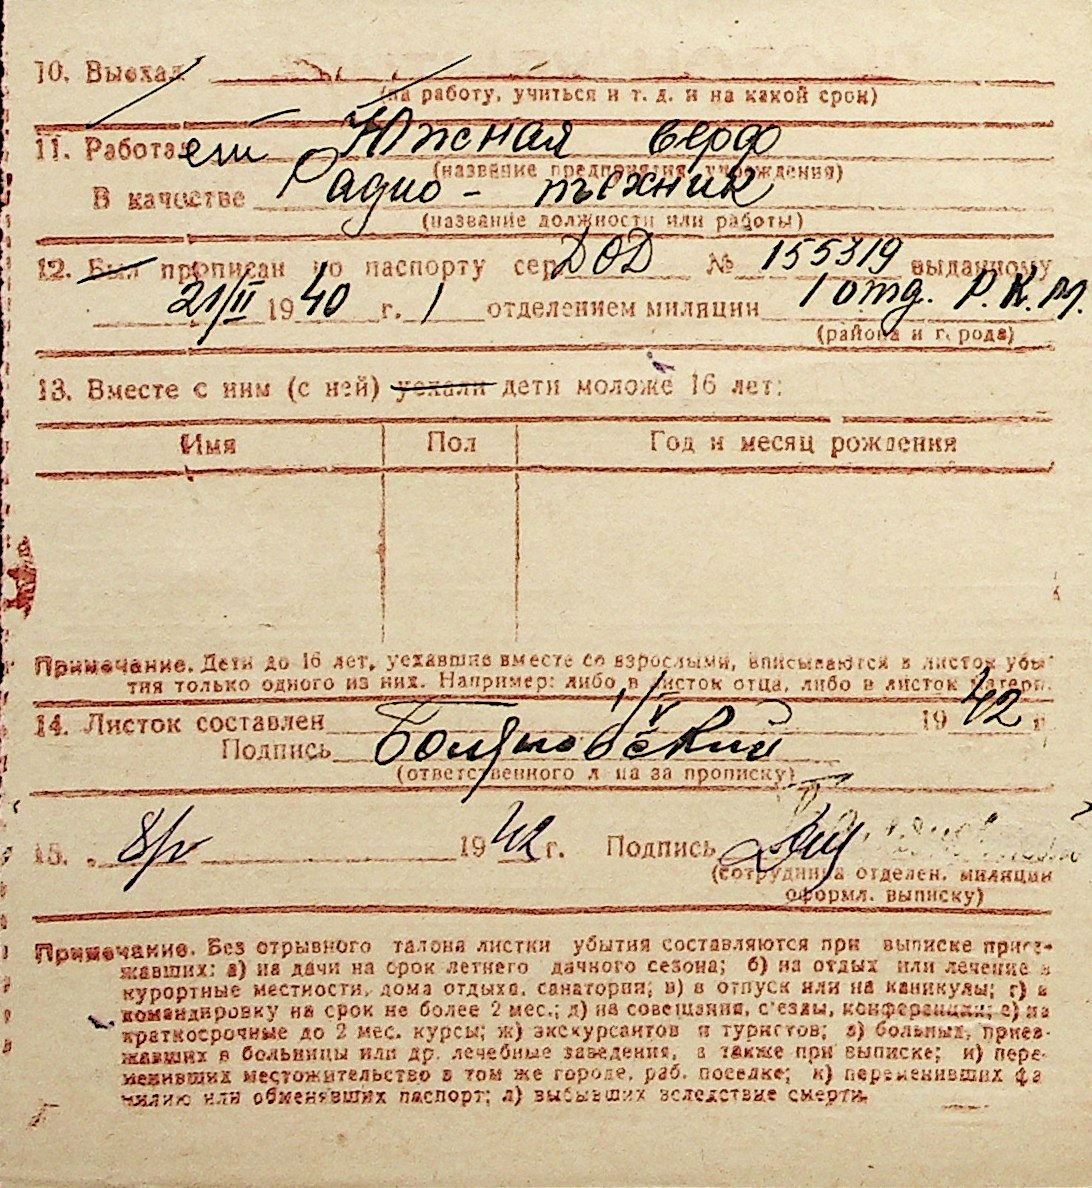 10. Выехал
(на работу, учиться и т. д. и на какой срок)
11. Работает Южная верф
(название предприятия, учреждения)
В качестве Радио-техник
(название должности или работы)
12. Был прописан по паспорту сер. DOD № 155319 выданному
21/II 1940 г. 1 отделением милиции 1 отд. Р.К.М.
(района и города)
13. Вместе с ним (с ней) уехали дети моложе 16 лет:
Имя Пол Год и месяц рождения
Примечание. Дети до 16 лет, уехавшие вместе со взрослыми, вписываются в листок убы-
тия только одного из них. Например: либо в листок отца, либо в листок матери.
14. Листок составлен 1/V 1942 г.
Подпись
(ответственного лица за прописку)
15. 8/V 1942 г. Подпись
(сотрудника отделен. милиции
оформл. выписку)
Примечание. Без отрывного талона листки убытия составляются при выписке приез-
жавших: а) на дачи на срок летнего дачного сезона; б) на отдых или лечение в
курортные местности, дома отдыха, санатории; в) в отпуск или на каникулы; г) в
командировку на срок не более 2 мес.; д) на совещания, с'езды, конференции; е) на
краткосрочные до 2 мес. курсы; ж) экскурсантов и туристов; з) больных, приез-
жавших в больницы или др. лечебные заведения, а также при выписке; и) пере-
менивших местожительство в том же городе, раб. поселке; к) переменивших фа
милию или обменявших паспорт; л) выбывших вследствие смерти.